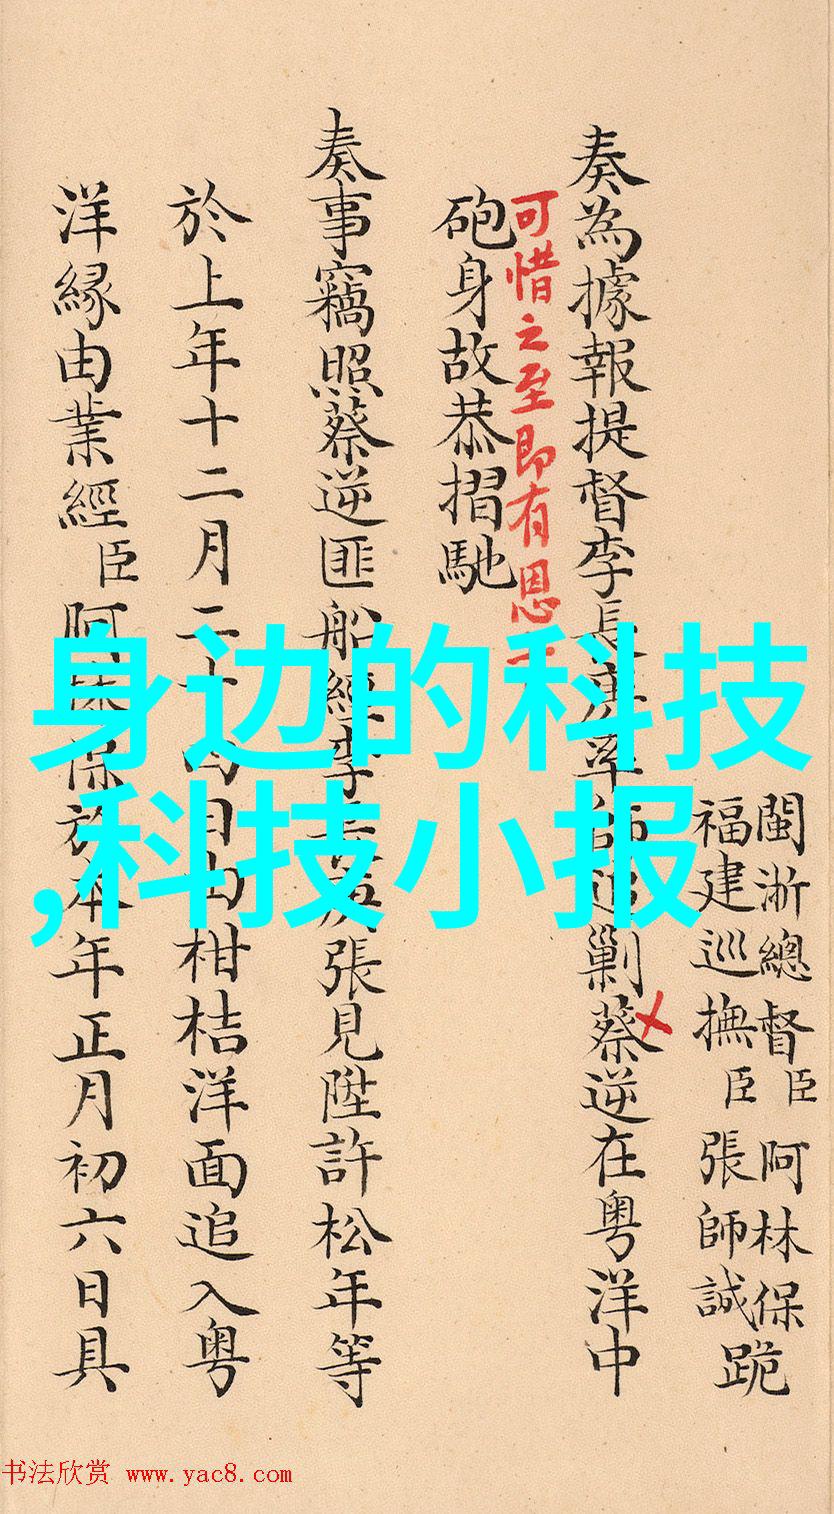 身边的科技
,科技小报
閩浙總督臣阿林保
福建巡撫臣張師誠跪
奏為據報提督李長庚率師追剿蔡逆在粤洋中
可惜之至即有恩
砲身故恭摺馳
奏事竊照蔡逆匪船經李長庚張見陞許松年等
於上年十二月二十四日由柑桔洋面追入粤
洋緣由業經臣阿林保於本年正月初六日具
书法欣赏 www.yac8.com